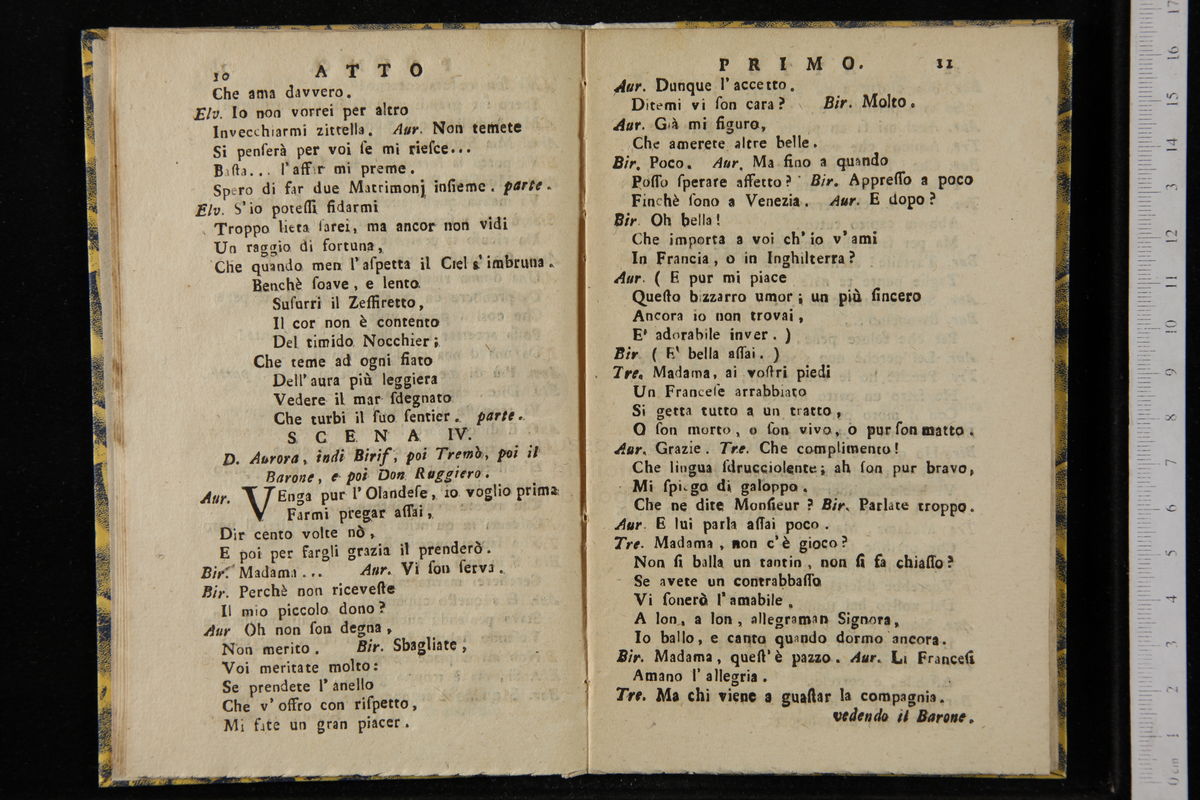 10 ATTO
Che ama davvero.
Elv. Io non vorrei per altro
Invecchiarmi zittella. Aur. Non temete
Si penſerà per voi ſe mi rieſce...
Baſta... l'affar mi preme.
Spero di far due Matrimonj inſieme. parte.
Elv. S'io poteſſi fidarmi
Troppo lieta ſarei, ma ancor non vidi
Un raggio di fortuna,
Che quando men l'aſpetta il Ciel s'imbruna.
Benchè ſoave, e lento
Suſurri il Zeffiretto,
Il cor non è contento
Del timido Nocchier;
Che teme ad ogni fiato
Dell'aura più leggiera
Vedere il mar ſdegnato
Che turbi il ſuo ſentier. parte.
SCENA IV.
D. Aurora, indi Birif, poi Tremò, poi il
Barone, e poi Don Ruggiero.
Aur. VEnga pur l'Olandeſe, io voglio prima
Farmi pregar aſſai,
Dir cento volte nò,
E poi per fargli grazia il prenderò.
Bir. Madama... Aur. Vi ſon ſerva.
Bir. Perchè non riceveſte
Il mio piccolo dono?
Aur Oh non ſon degna,
Non merito. Bir. Sbagliate;
Voi meritate molto:
Se prendete l'anello
Che v'offro con riſpetto,
Mi fate un gran piacer.
PRIMO. 11
Aur. Dunque l'accetto.
Ditemi vi ſon cara? Bir. Molto.
Aur. Già mi figuro,
Che amerete altre belle.
Bir. Poco. Aur. Ma ſino a quando
Poſſo ſperare affetto? Bir. Appreſſo a poco
Finchè ſono a Venezia. Aur. E dopo?
Bir. Oh bella!
Che importa a voi ch'io v'ami
In Francia, o in Inghilterra?
Aur. ( E pur mi piace
Queſto bizzarro umor; un più ſincero
Ancora io non trovai,
E' adorabile inver. )
Bir. ( E' bella aſſai. )
Tre. Madama, ai voſtri piedi
Un Franceſe arrabbiato
Si getta tutto a un tratto,
O ſon morto, o ſon vivo, o pur ſon matto.
Aur. Grazie. Tre. Che complimento!
Che lingua ſdrucciolente; ah ſon pur bravo,
Mi ſpiego di galoppo.
Che ne dite Monſieur? Bir. Parlate troppo.
Aur. E lui parla aſſai poco.
Tre. Madama, non c'è gioco?
Non ſi balla un tantin, non ſi fa chiaſſo?
Se avete un contrabbaſſo
Vi ſonerò l'amabile,
A lon, a lon, allegraman Signora,
Io ballo, e canto quando dormo ancora.
Bir. Madama, queſt'è pazzo. Aur. Li Franceſi
Amano l'allegria.
Tre. Ma chi viene a guaſtar la compagnia.
vedendo il Barone.
0 cm 1 2 3 4 5 6 7 8 9 10 11 12 13 14 15 16 17